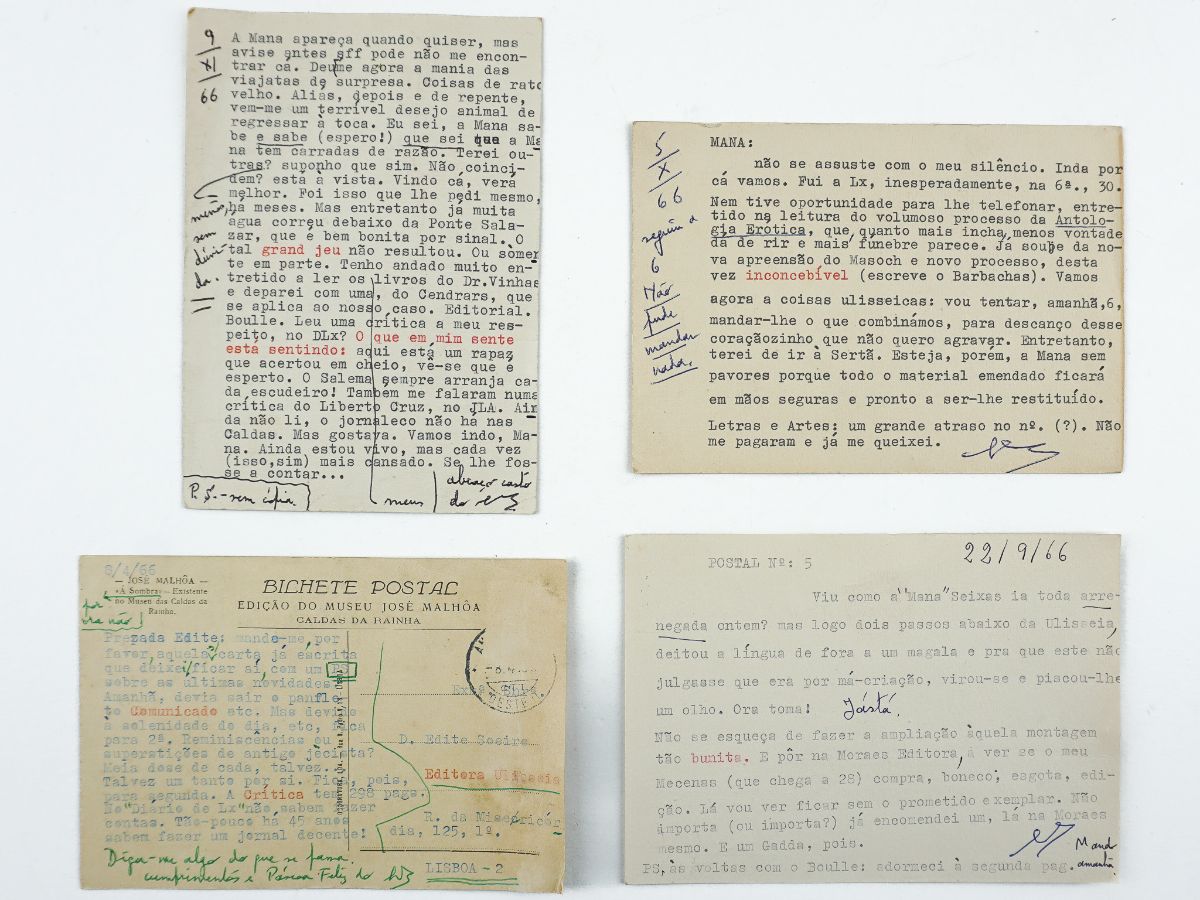 9
XI
66
A Mana apareça quando quiser, mas
avise antes sff pode não me encon-
trar cá. Deu-me agora a mania das
viajatas de surpresa. Coisas de rato
velho. Alias, depois e de repente,
vem-me um terrível desejo animal de
regressar à toca. Eu sei, a Mana sa-
be e sabe (espero!) que sei que a Ma
na tem carradas de razão. Terei ou-
tras? suponho que sim. Não coinci-
dem? está à vista. Vindo cá, verá
melhor. Foi isso que lhe pedi mesmo,
há meses. Mas entretanto já muita
agua correu debaixo da Ponte Sala-
zar, que é bem bonita por sinal. O
tal grand jeu não resultou. Ou sòmen
te em parte. Tenho andado muito en-
tretido a ler os livros do Dr.Vinhas
e deparei com uma, do Cendrars, que
se aplica ao nosso caso. Editorial.
Boulle. Leu uma crítica a meu res-
peito, no DLx? O que em mim sente
esta sentindo: aqui está um rapaz
que acertou em cheio, vê-se que é
esperto. O Salema sempre arranja ca-
da escudeiro! Também me falaram numa
crítica do Liberto Cruz, no JLA. Ain
da não li, o jornaleco não há nas
Caldas. Mas gostava. Vamos indo, Ma-
na. Ainda estou vivo, mas cada vez
(isso,sim) mais cansado. Se lhe fos-
se a contar...
menos,
sem
dúvi
da.
P.S.-sem cópia
meus
abraço casto
do
MANA:
não se assuste com o meu silêncio. Inda por
cá vamos. Fui a Lx, inesperadamente, na 6ª., 30.
Nem tive oportunidade para lhe telefonar, entre-
tido na leitura do volumoso processo da Antolo-
gia Erotica, que quanto mais incha menos vontade
dá de rir e mais fúnebre parece. Já soube da no-
va apreensão do Masoch e novo processo, desta
vez inconcebível (escreve o Barbachas). Vamos
agora a coisas ulisseicas: vou tentar, amanhã,6,
mandar-lhe o que combinámos, para descanço desse
coraçãozinho que não quero agravar. Entretanto,
terei de ir à Sertã. Esteja, porém, a Mana sem
pavores porque todo o material emendado ficará
em mãos seguras e pronto a ser-lhe restituído.
Letras e Artes: um grande atraso no nº. (?). Não
me pagaram e já me queixei.
5
X
66
seguiu a
6
Não
pude
mandar
nada.
8/4/66
— JOSÉ MALHÔA —
«Á Sombra» — Existente
no Museu das Caldas da
Rainha.
por
ora não!
BILHETE POSTAL
EDIÇÃO DO MUSEU JOSÉ MALHÔA
CALDAS DA RAINHA
Prezada Edite: mande-me,por
favor,aquela carta já escrita
que deixei ficar aí,com um PS
sobre as últimas novidades.
Amanhã, devia sair o panfle-
to Comunicado etc. Mas devido
à solenidade do dia, etc, fica
para 2ª. Reminiscências ou
superstições de antigo jècista?
Meia dose de cada, talvez.
Talvez um tanto por si. Fica, pois,
para segunda. A Crítica tem 298 pags.
No "Diário de Lx" não sabem fazer
contas. Tão-pouco há 45 anos
sabem fazer um jornal decente!
Diga-me algo do que se passa.
cumprimentos e Páscoa Feliz do
D. Edite Soeiro
Editora Ulisseia
R. da Misericór
dia, 125, 1º.
LISBOA - 2
POSTAL Nº: 5
22/9/66
Viu como a "Mana" Seixas ia toda arre-
negada ontem? mas logo dois passos abaixo da Ulisseia,
deitou a língua de fora a um magala e pra que este não
julgasse que era por má-criação, virou-se e piscou-lhe
um olho. Ora toma! Jástá.
Não se esqueça de fazer a ampliação àquela montagem
tão bunita. E pôr na Moraes Editora, a ver se o meu
Mecenas (que chega a 28) compra, boneco, esgota, edi-
ção. Lá vou ver ficar sem o prometido exemplar. Não
importa (ou importa?) já encomendei um, lá na Moraes
mesmo. E um Gadda, pois.
Mand
amanhã
PS,às voltas com o Boulle: adormeci à segunda pag.